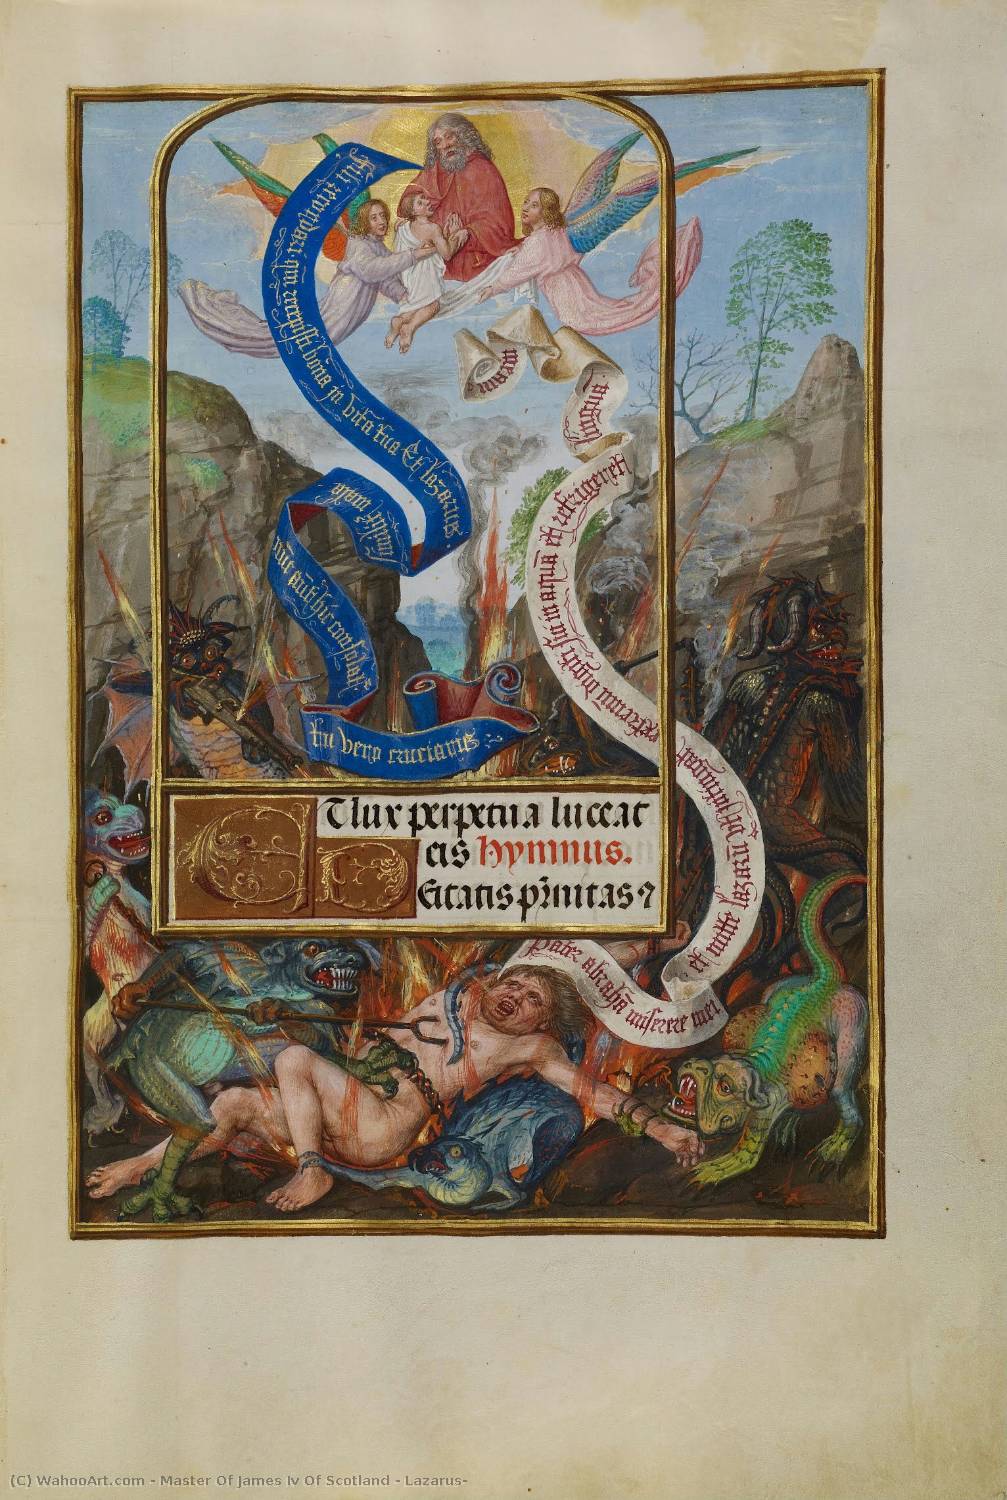 fili recordare qm recepisti bona in vita tua Et lazarus
similit mala
nūc aūt hic consolatr
tu vero cruciaris
Pater abrahā miserere mei
et mitte lazarū vt intingat
extremū digiti sui in aquā et refrigeret
linguā
meam
ET lux perpetua luceat
eis hymnus.
DEitatis
(C) WahooArt.com - Master Of James Iv Of Scotland - Lazarus-